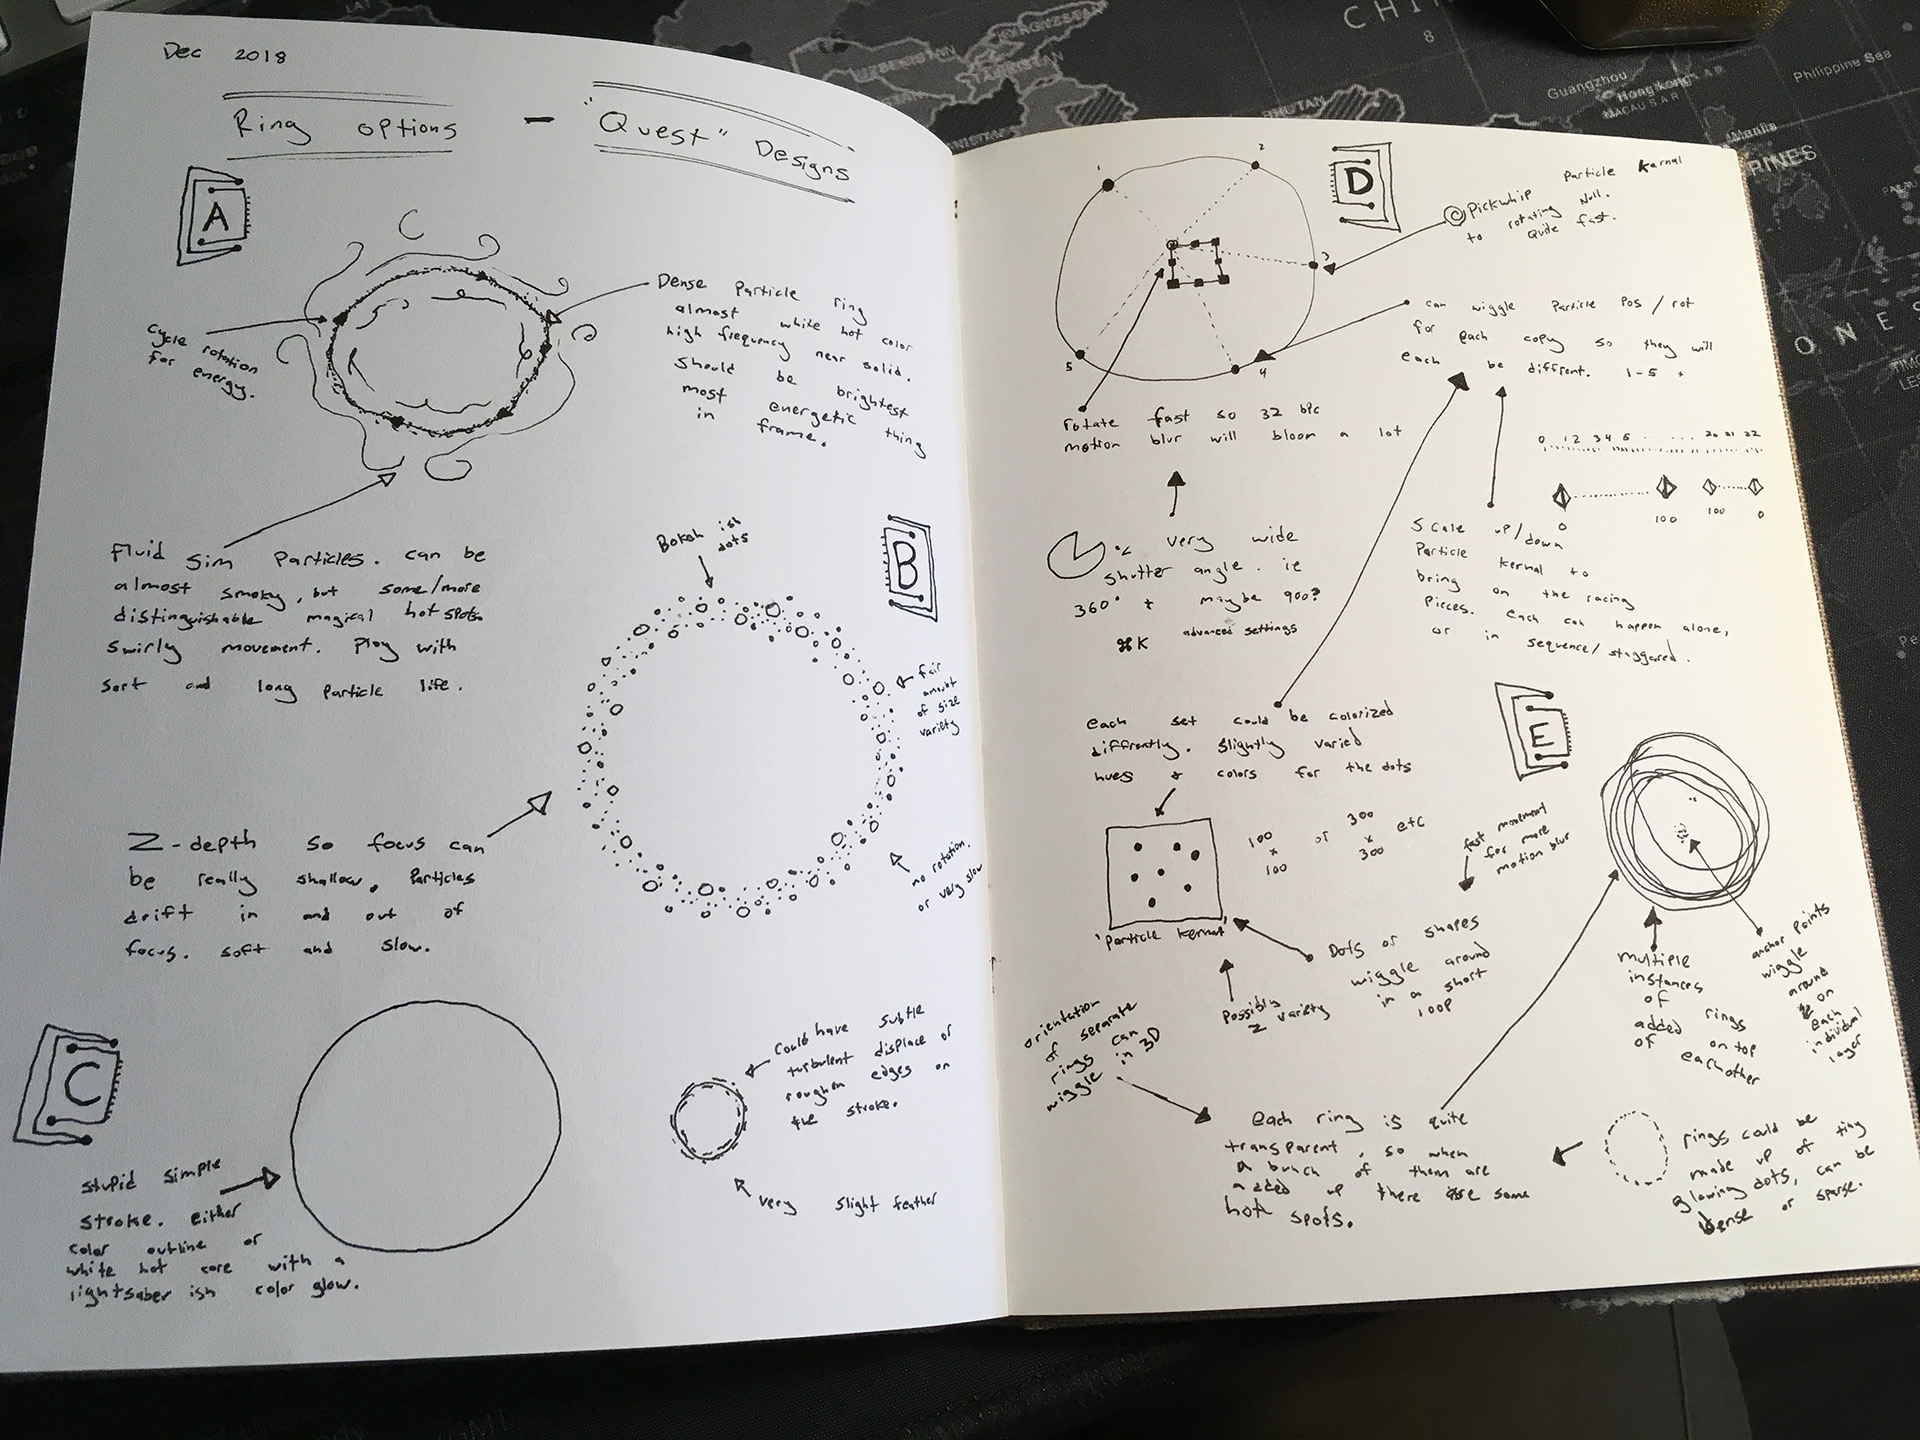 Dec 2018
Ring options - "Quest" Designs
A
Cycle rotation
for energy.
Dense Particle ring
almost white hot color
high frequency near solid.
Should be brightest
most energetic thing
in frame.
Fluid sim Particles. can be
almost smoky, but some/more
distinguishable magical hot spots.
Swirly movement. Play with
sort and long Particle life.
B
Bokeh ish
dots
fair
amount
of size
variety
Z-depth so focus can
be really shallow. Particles
drift in and out of
focus. soft and slow.
no rotation.
or very slow
C
Stupid simple
stroke. either
color outline or
white hot core with a
lightsaber ish color glow.
Could have subtle
turbulent displace or
roughen edges on
the stroke.
very slight feather
D
1
2
3
4
5
Pickwhip Particle Kernal
to rotating Null.
Quite fast.
can wiggle Particle Pos / rot
for each copy so they will
each be diffrent. 1-5 +
rotate fast so 32 bpc
motion blur will bloom a lot
0 1 2 3 4 5 ...... 20 21 22
0 100 100 0
very wide
shutter angle. ie
360° + maybe 900?
⌘K advanced settings
Scale up/down
Particle kernel to
bring on the racing
Pieces. Each can happen alone,
or in sequence/ staggared.
each set could be colorized
diffrently. Slightly varied
hues + colors for the dots
100
x
100
or
300
x
300
etc
'Particle Kernal'
fast movement
for more
motion blur
Dots or shapes
wiggle around
in a short
loop
Possibly
Z variety
E
multiple
instances
of rings
added on top
of eachother
anchor Points
wiggle
around
on
each
individual
layer
orientation
of separate
rings can
wiggle in 3D
each ring is quite
transparent, so when
a bunch of them are
added up there are some
hot spots.
rings could be
made up of tiny
glowing dots, can be
dense or sparse.
CHIN
8
UZBEKISTAN
KYRGYZSTAN
TAJIKISTAN
BHUTAN
Guangzhou
Hong Kong
MACAU S.A.R
Philippine Sea
Manila